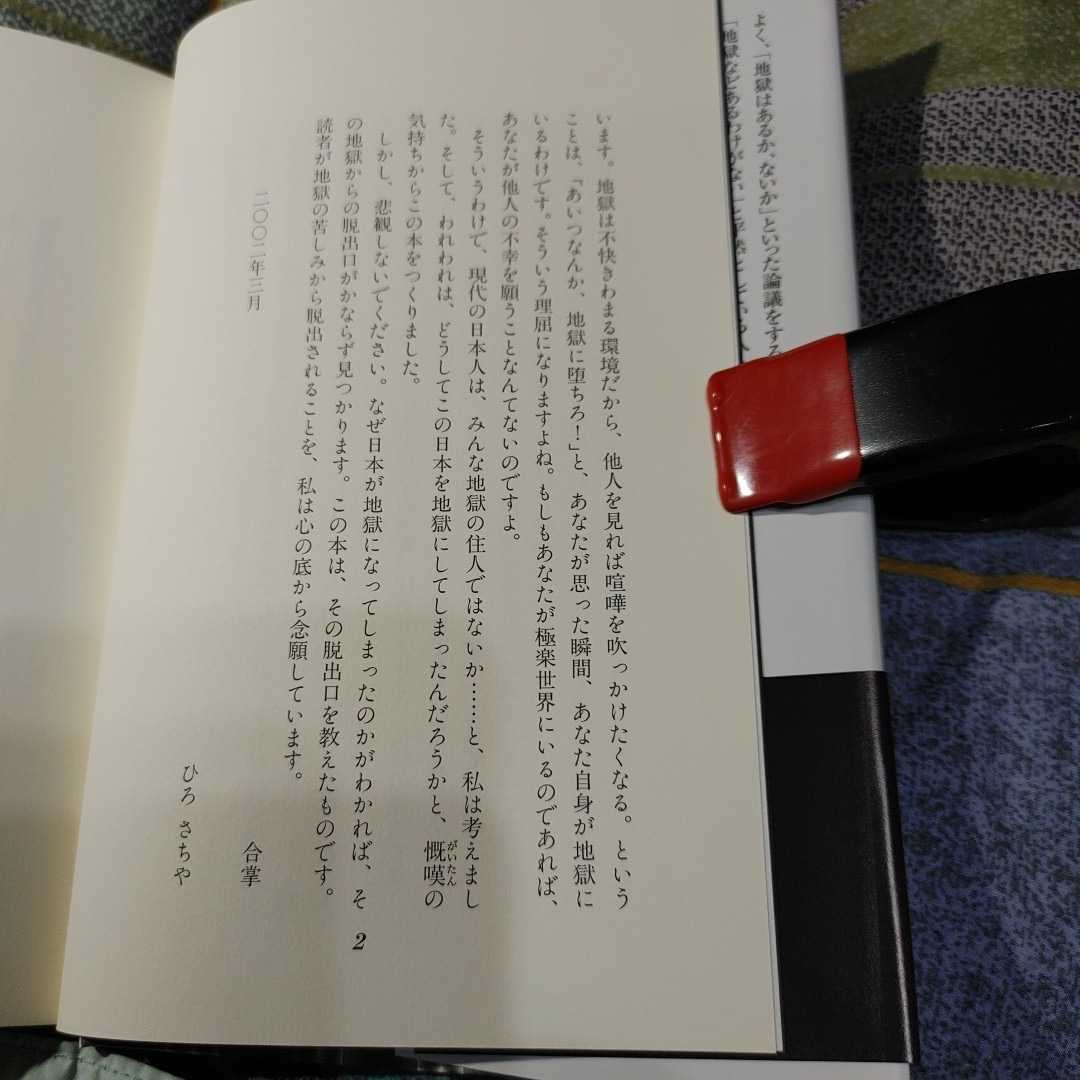 よく、「地獄はあるか、ないか」といった論議をする
「地獄などあるわけがない」と
います。地獄は不快きわまる環境だから、他人を見れば喧嘩を吹っかけたくなる。という
ことは、「あいつなんか、地獄に堕ちろ！」と、あなたが思った瞬間、あなた自身が地獄に
いるわけです。そういう理屈になりますよね。もしもあなたが極楽世界にいるのであれば、
あなたが他人の不幸を願うことなんてないのですよ。
そういうわけで、現代の日本人は、みんな地獄の住人ではないか……と、私は考えまし
た。そして、われわれは、どうしてこの日本を地獄にしてしまったんだろうかと、慨嘆の
がいたん
気持ちからこの本をつくりました。
しかし、悲観しないでください。なぜ日本が地獄になってしまったのかがわかれば、そ
の地獄からの脱出口がかならず見つかります。この本は、その脱出口を教えたものです。
読者が地獄の苦しみから脱出されることを、私は心の底から念願しています。
二〇〇二年三月
合掌
ひろ さちや
2